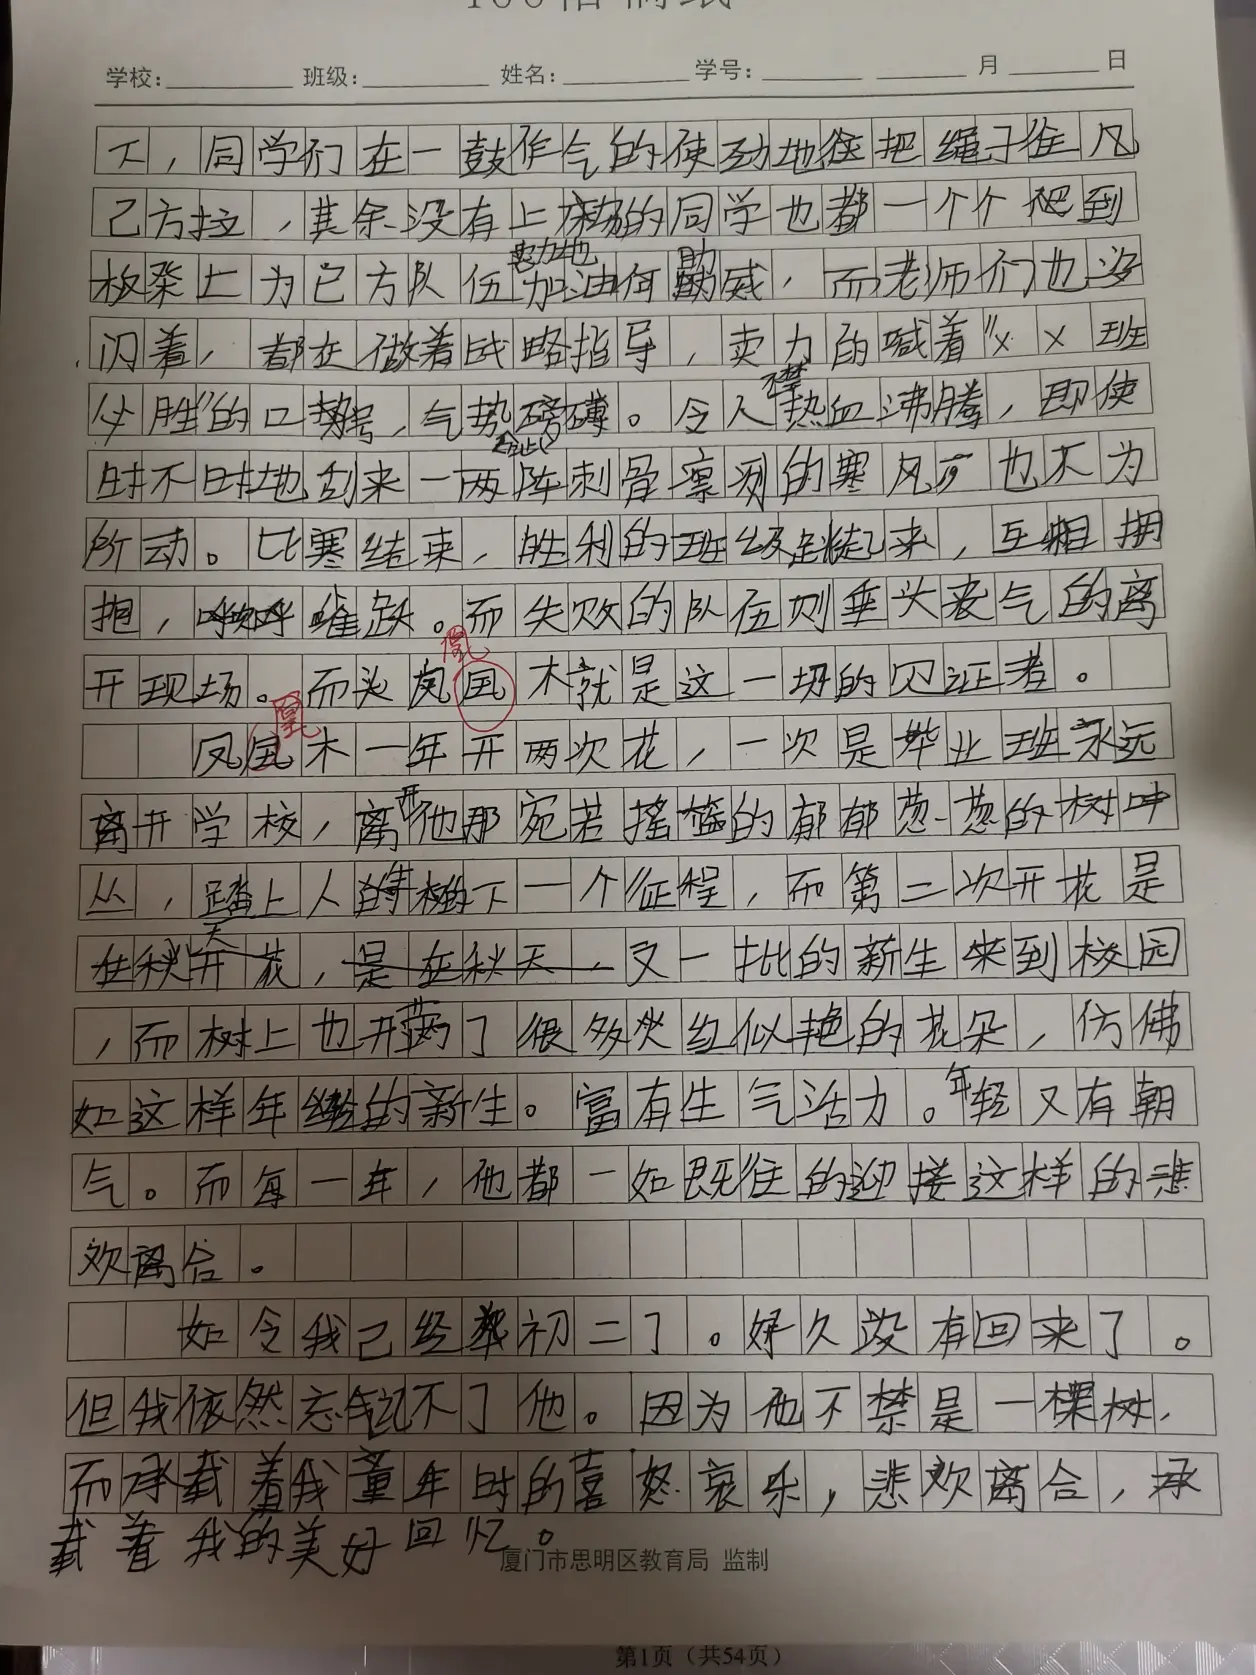 学校： 班级： 姓名： 学号： 月 日
下，同学们在一鼓作气的使劲地往把绳子往凡
己方拉，其余没有上场的同学也都一个个爬到
板凳上为己方队伍努力地加油何助威，而老师们也没
闪着，都在做着战略指导，卖力的喊着"××班
必胜"的口号，气势磅礴。令人不禁热血沸腾，即使
时不时地刮来一两阵刺骨凛冽的寒风 也不为
所动。比赛结束，胜利的班级跳起来，互相拥
抱，欢呼雀跃。而失败的队伍则垂头丧气的离
开现场。而头凤凰木就是这一切的见证者。
凤凰木一年开两次花，一次是毕业班永远
离开学校，离开他那宛若摇篮的郁郁葱葱的树叶
丛，踏上人生的下一个征程，而第二次开花是
在秋天开花，是在秋天，又一批的新生来到校园
，而树上也开满了很多火红似艳的花朵，仿佛
如这样年轻的新生。富有生气活力。年轻又有朝
气。而每一年，他都一如既往的迎接这样的悲
欢离合。
如今我已经 初二了。好久没有回来了。
但我依然忘记不了他。因为他不禁是一棵树，
而承载着我童年时的喜怒哀乐，悲欢离合，承
载着我的美好回忆。
厦门市思明区教育局 监制
第1页（共54页）